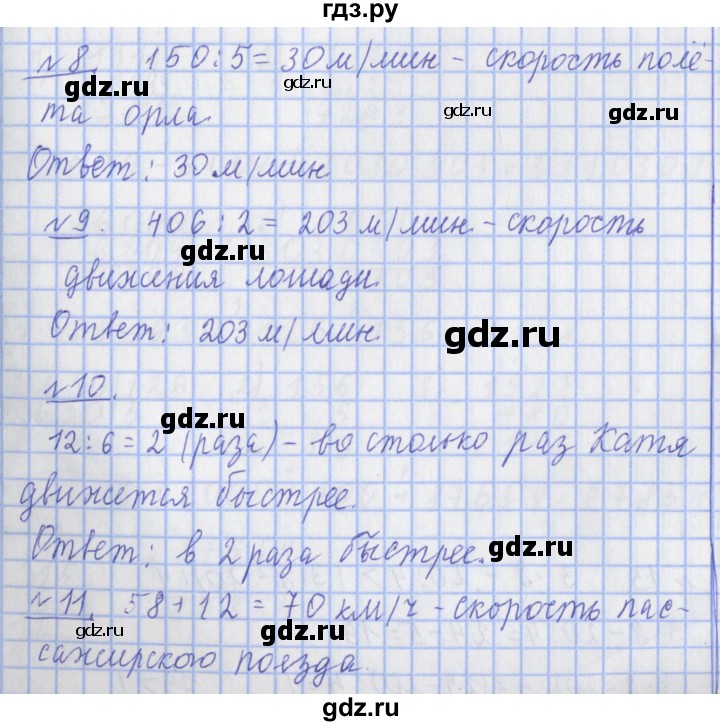 гдз.ру
№8. 150:5=30 м/мин - скорость полё-
та орла.
Ответ: 30 м/мин.
№9. 406:2=203 м/мин. - скорость
движения лошади.
Ответ: 203 м/мин.
№10.
12:6=2 (раза) - во столько раз Катя
движется быстрее.
Ответ: в 2 раза быстрее.
№11. 58+12=70 км/ч - скорость пас-
сажирского поезда.
gdz.ru
gdz.ru
gdz.ru
gdz.ru
gdz.ru
gdz.ru
gdz.ru
gdz.ru
gdz.ru
gdz.ru
gdz.ru